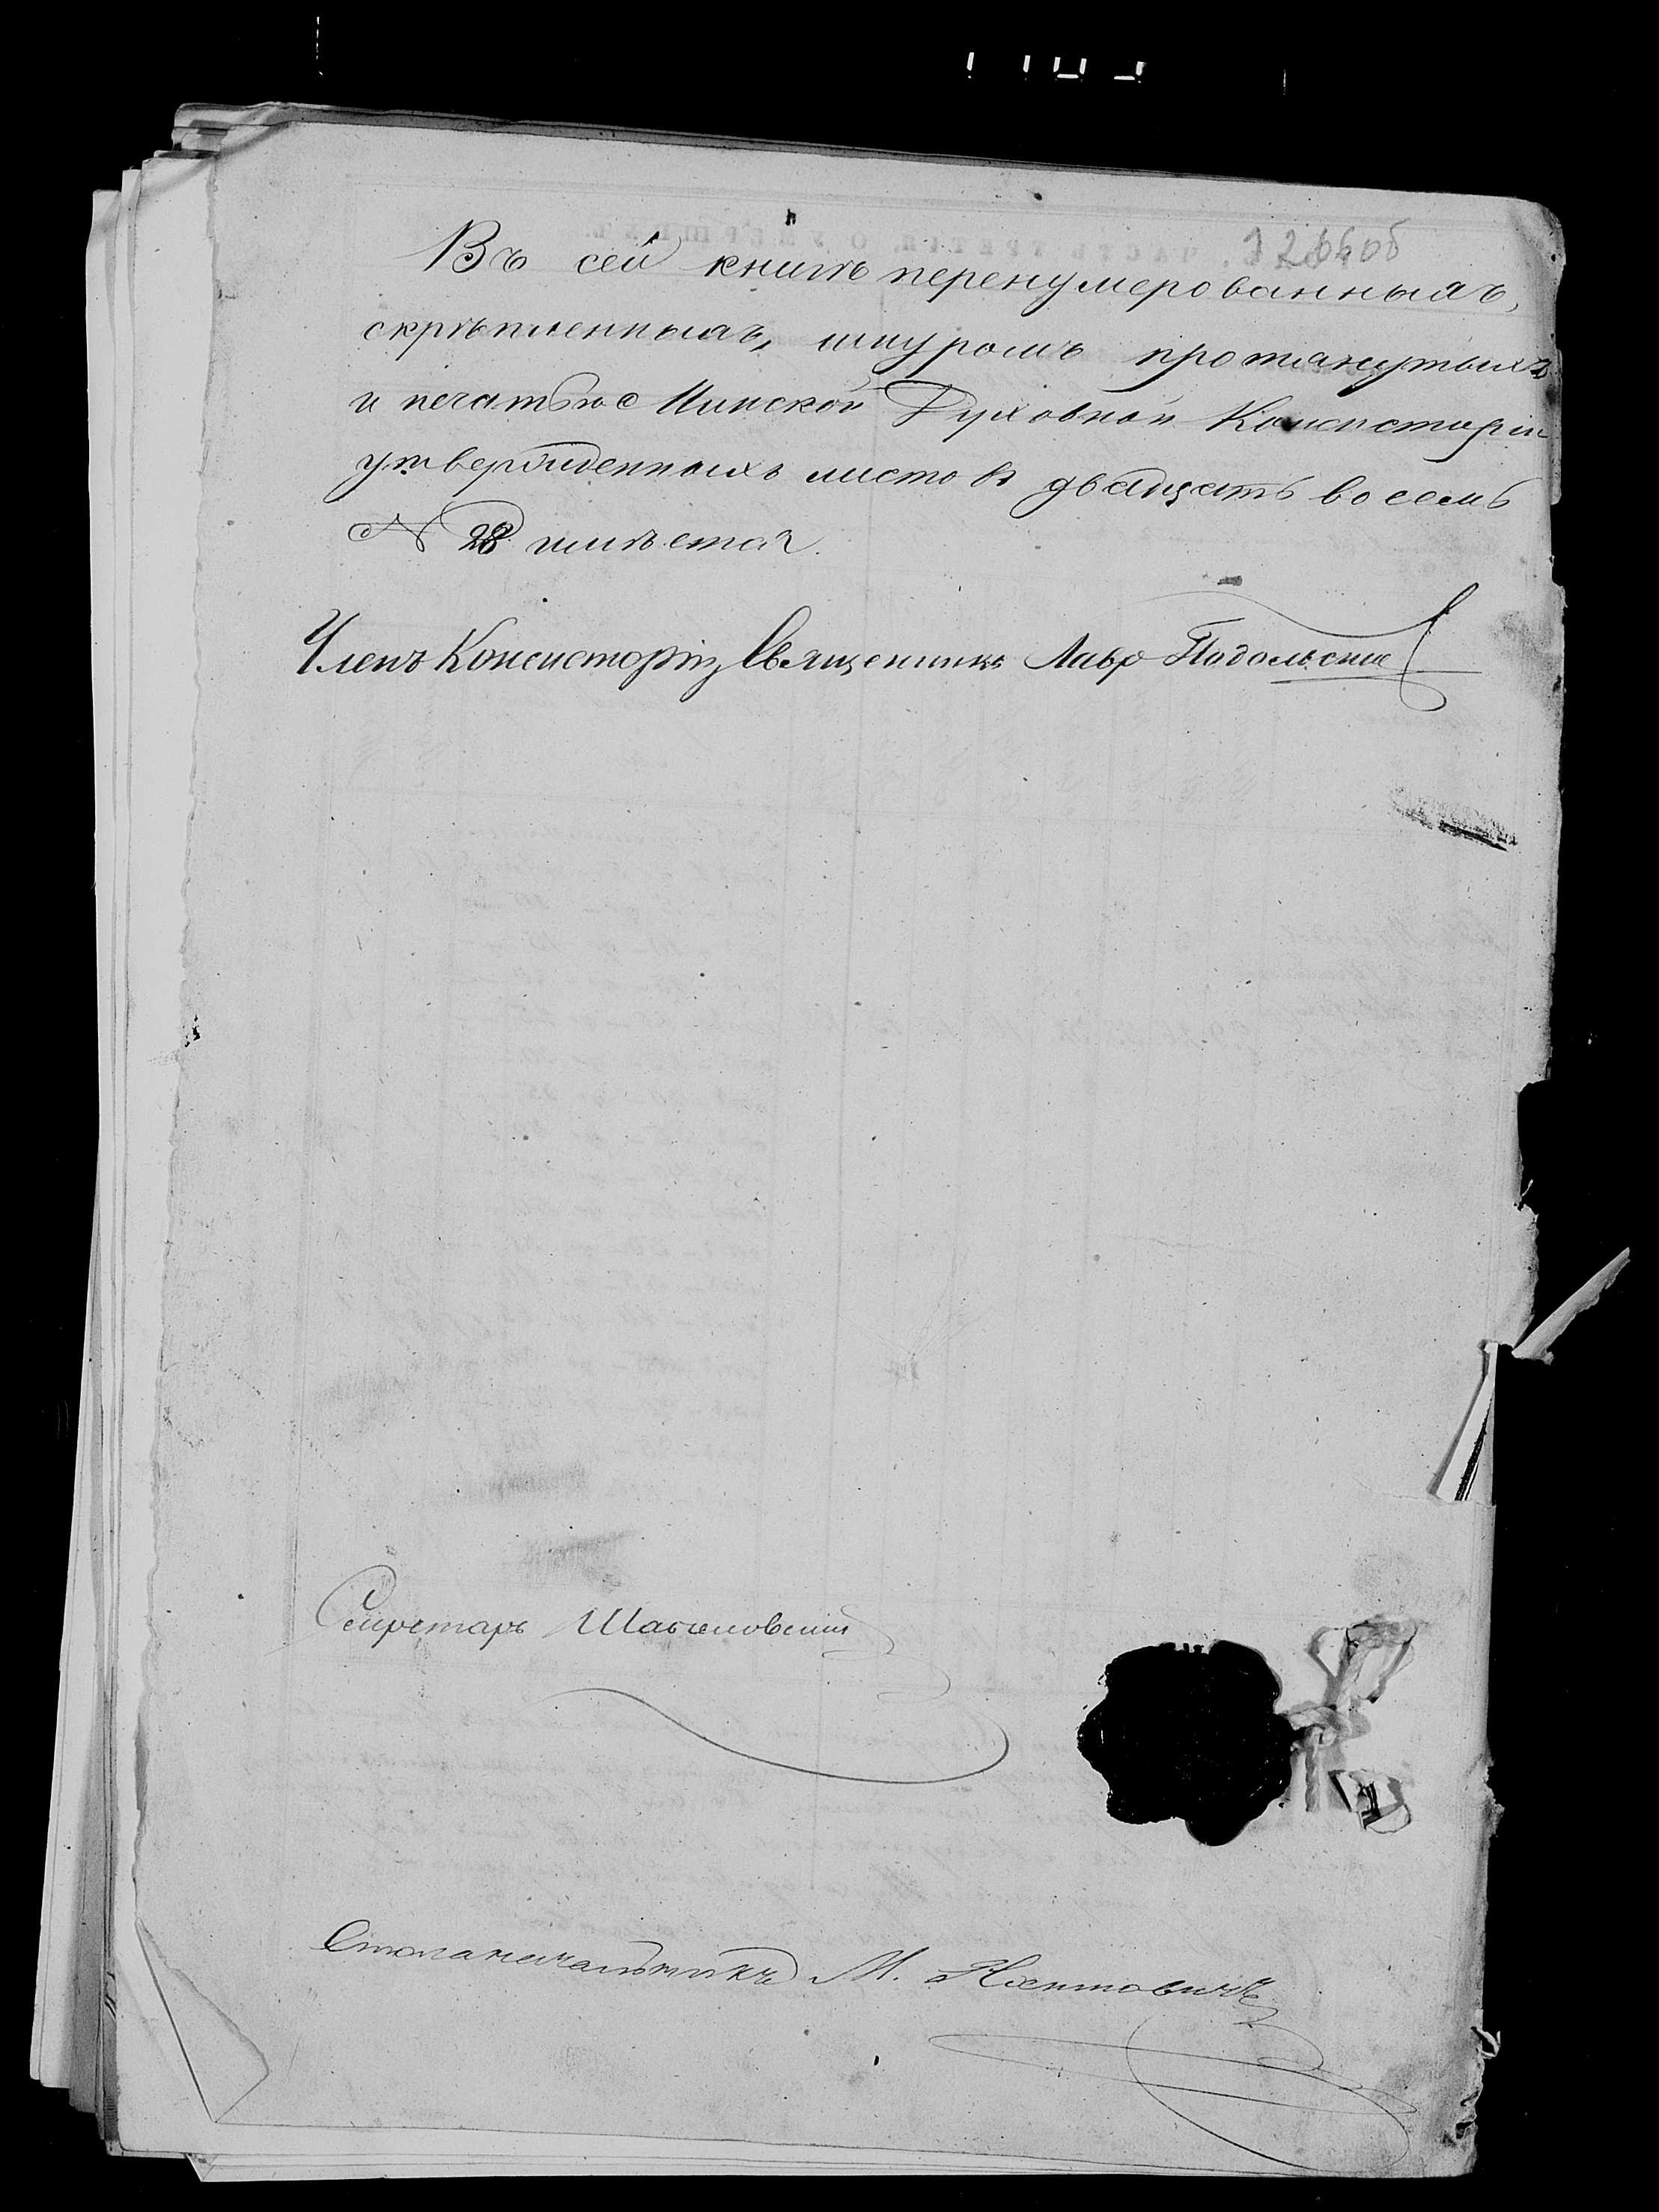 Въ сей книгѣ перенумерованныхъ,
скрѣпленныхъ, шнуромъ протянутыхъ
и печатью Минской Духовной Консисторіи
утвержденныхъ листовъ двадцать восемь
№ 28 имѣется.
Членъ Консисторіи Священникъ Лавръ Подольскій
Секретарь
Столоначальникъ М.